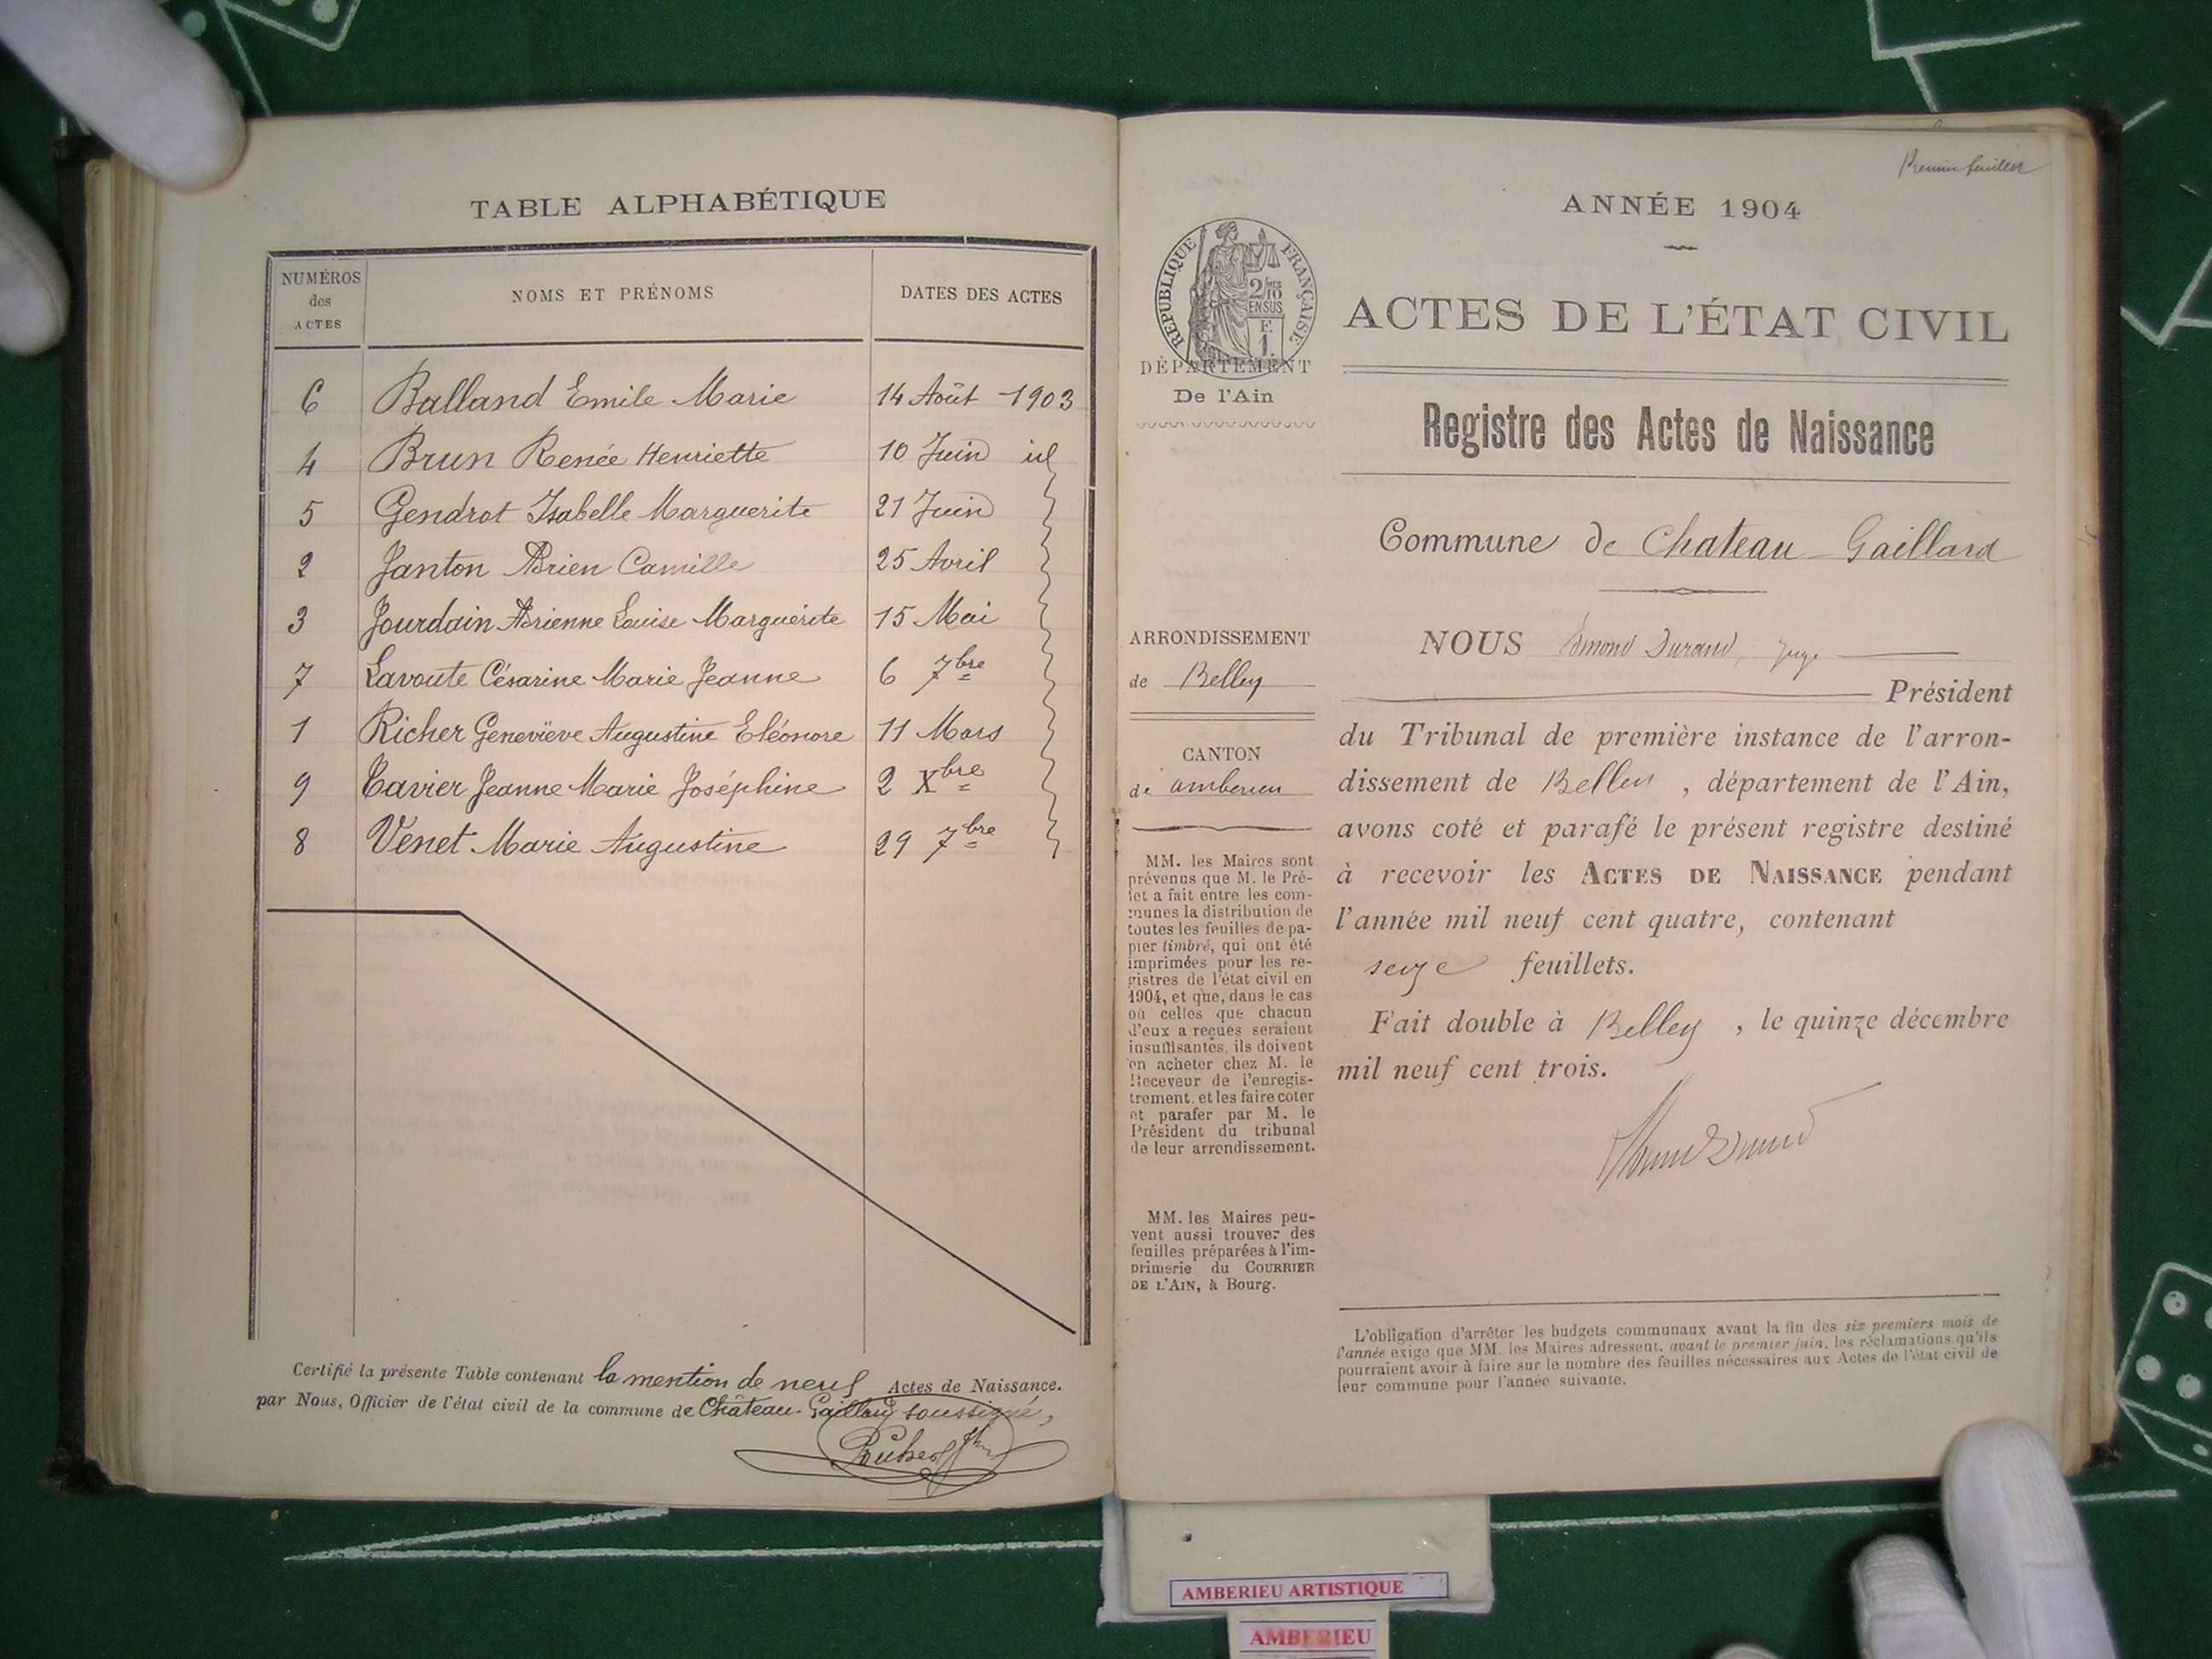 TABLE ALPHABÉTIQUE
NUMÉROS
des
ACTES
NOMS ET PRÉNOMS
DATES DES ACTES
6 Balland Emile Marie 14 Août 1903
4 Brun Renée Henriette 10 Juin id
5 Gendrot Isabelle Marguerite 21 Juin
2 Janton Adrien Camille 25 Avril
3 Jourdain Adrienne Louise Marguerite 15 Mai
7 Lavoute Césarine Marie Jeanne 6 7bre
1 Richer Geneviève Augustine Eléonore 11 Mars
9 Tavier Jeanne Marie Joséphine 2 Xbre
8 Venet Marie Augustine 29 7bre
Certifié la présente Table contenant la mention de neuf Actes de Naissance.
par Nous, Officier de l'état civil de la commune de Château-Gaillard soussigné,
Premier feuillet
ANNÉE 1904
RÉPUBLIQUE FRANÇAISE
2/10
EN SUS
F.
1.
DÉPARTEMENT
De l'Ain
ACTES DE L'ÉTAT CIVIL
Registre des Actes de Naissance
Commune de Chateau Gaillard
ARRONDISSEMENT
de Belley
CANTON
de amberieu
MM. les Maires sont
prévenus que M. le Pré-
fet a fait entre les com-
munes la distribution de
toutes les feuilles de pa-
pier timbré, qui ont été
imprimées pour les re-
gistres de l'état civil en
1904, et que, dans le cas
où celles que chacun
d'eux a reçues seraient
insuffisantes, ils doivent
en acheter chez M. le
Receveur de l'enregis-
trement, et les faire coter
et parafer par M. le
Président du tribunal
de leur arrondissement.
MM. les Maires peu-
vent aussi trouver des
feuilles préparées à l'im-
primerie du COURRIER
DE L'AIN, à Bourg.
NOUS Edmond Durand, juge
Président
du Tribunal de première instance de l'arron-
dissement de Belley, département de l'Ain,
avons coté et parafé le présent registre destiné
à recevoir les ACTES DE NAISSANCE pendant
l'année mil neuf cent quatre, contenant
seize feuillets.
Fait double à Belley, le quinze décembre
mil neuf cent trois.
L'obligation d'arrêter les budgets communaux avant la fin des six premiers mois de
l'année exige que MM. les Maires adressent, avant le premier juin, les réclamations qu'ils
pourraient avoir à faire sur le nombre des feuilles nécessaires aux Actes de l'état civil de
leur commune pour l'année suivante.
AMBERIEU ARTISTIQUE
AMBERIEU